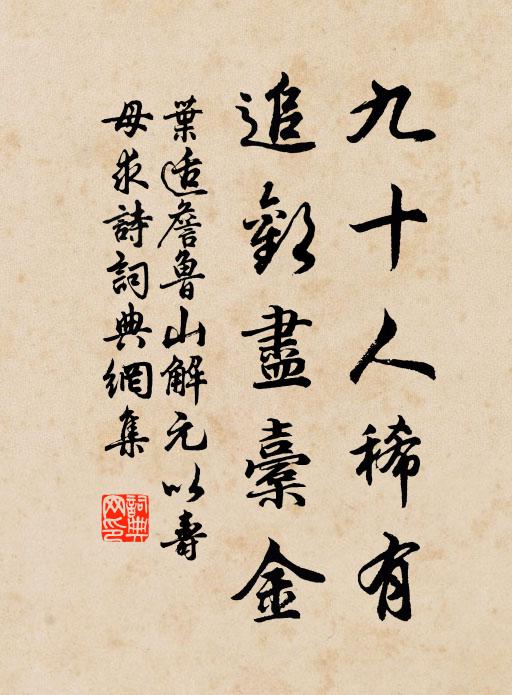 九十人稀有
追歡盡橐金
葉適詹魯山解元以壽
母求詩詞典網集
詞典網印